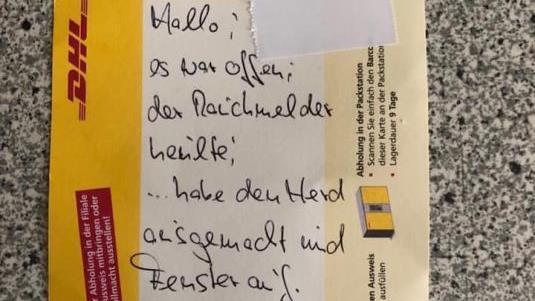 Hallo;
es war offen;
der Rauchmelder
heulte;
...habe den Herd
ausgemacht und
Fenster auf.
DHL
Abholung in der Packstation
Scannen Sie einfach den Barco
dieser Karte an der Packstation
Lagerdauer 9 Tage
r Abholung in der Filiale
usweis mitbringen oder
llmacht ausstellen!
en Ausweis
ausfüllen